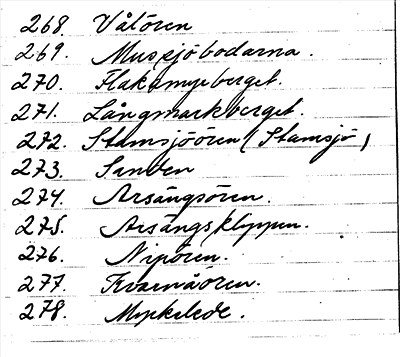 268. Våtören
269. Mussjöbodarna.
270. Flakamyrberget.
271. Långmarkberget.
272. Stamsjöören (Stamsjö)
273. Sanden
274. Arsångsören.
275. Arsångsklippen.
276. Nipören.
277. Kvarnåören.
278. Myckelede.